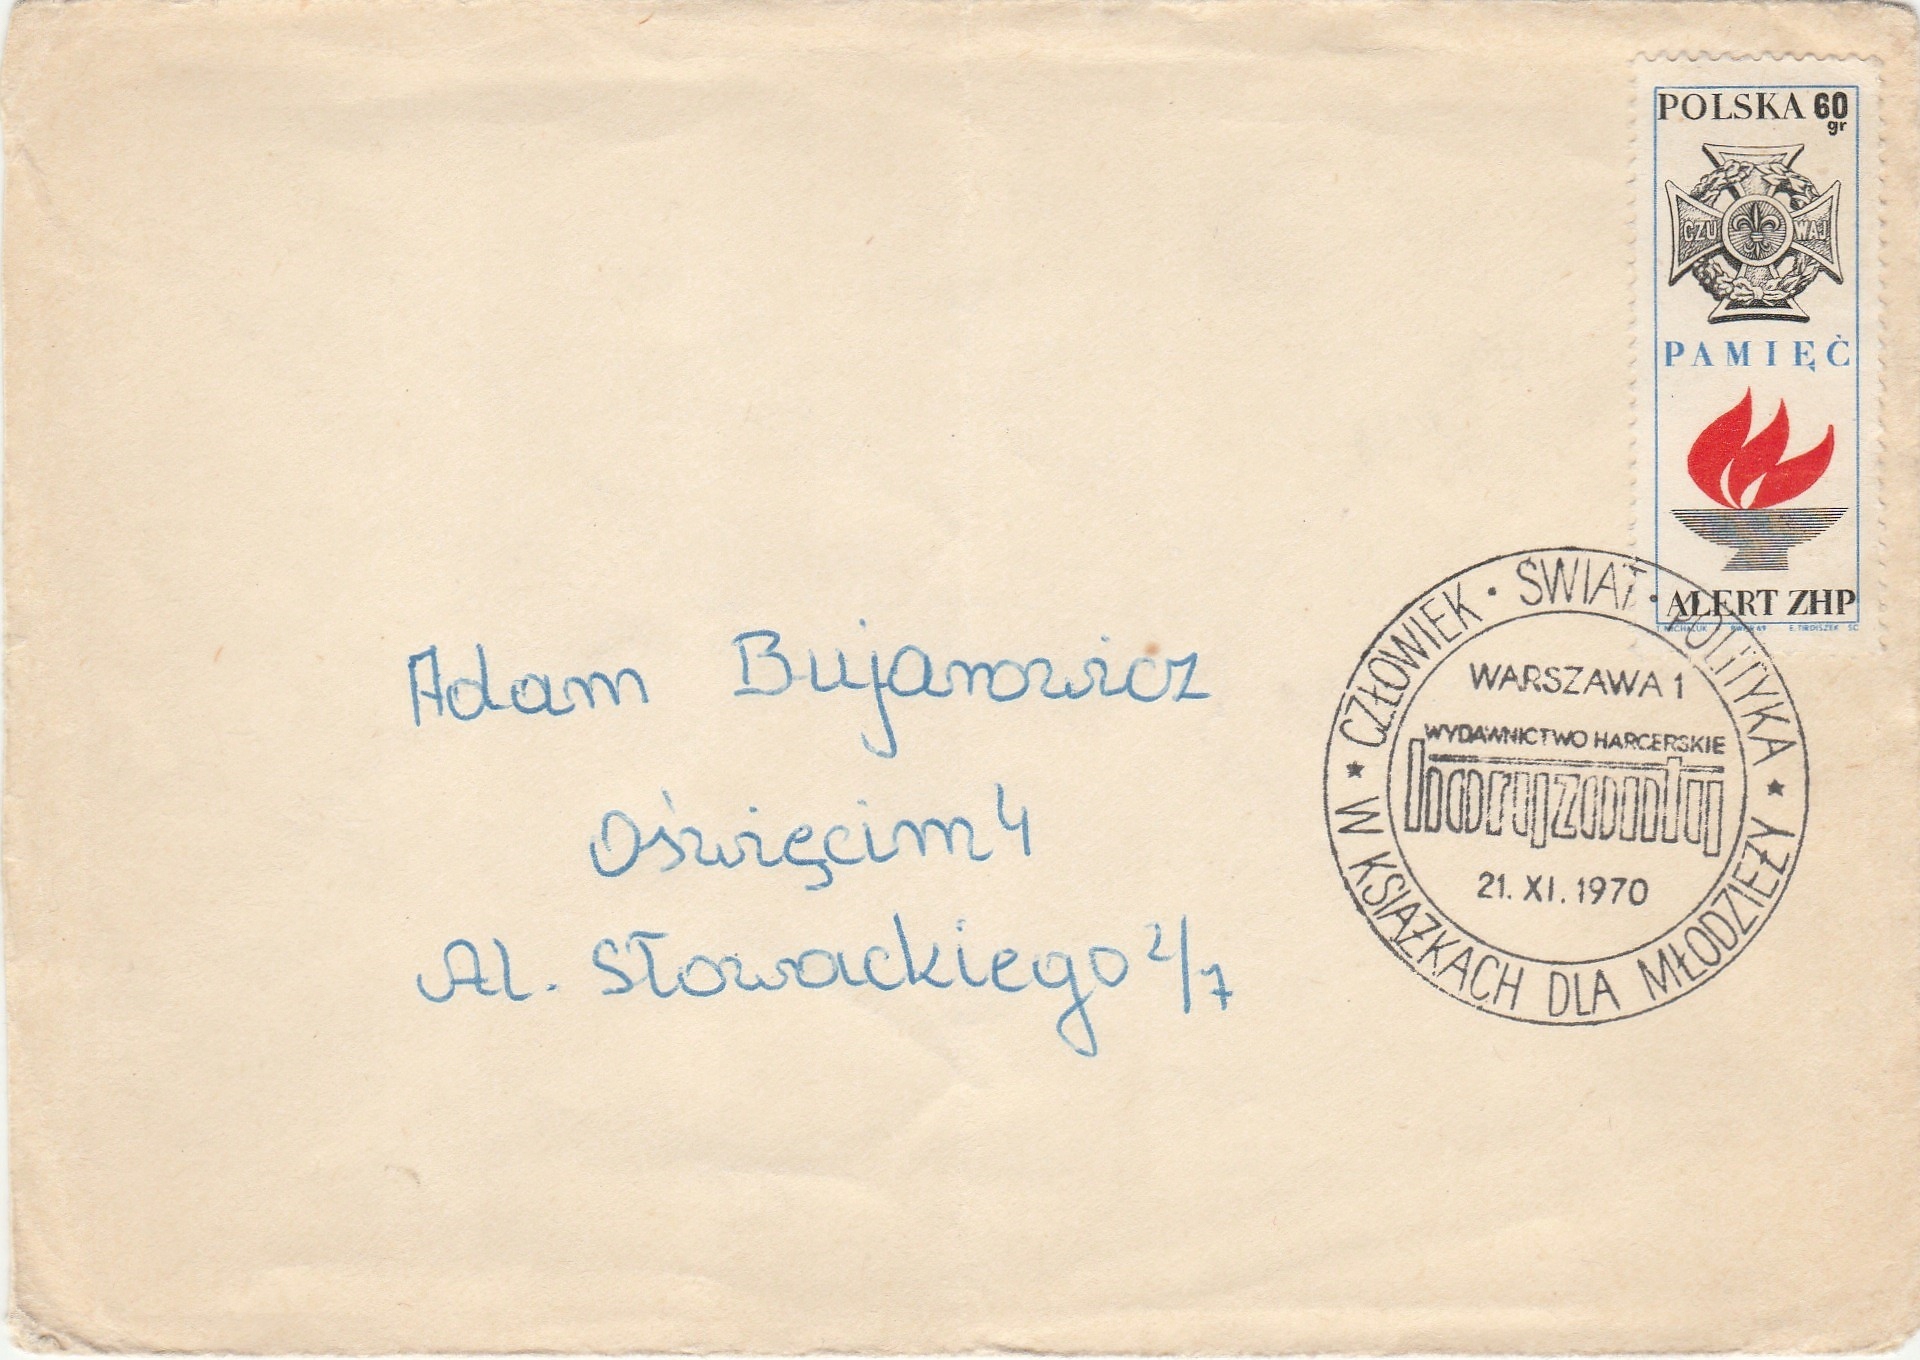 POLSKA 60
gr
CZU WAJ
PAMIĘĆ
ALERT ZHP
T. MICHALUK PWPW 69 E. TIRDISZEK SC
CZŁOWIEK · ŚWIAT · POLITYKA
WARSZAWA 1
WYDAWNICTWO HARCERSKIE
horyzonty
21. XI. 1970
★ W KSIĄŻKACH DLA MŁODZIEŻY ★
Adam Bujanowicz
Oświęcim 4
Al. Słowackiego 2/7